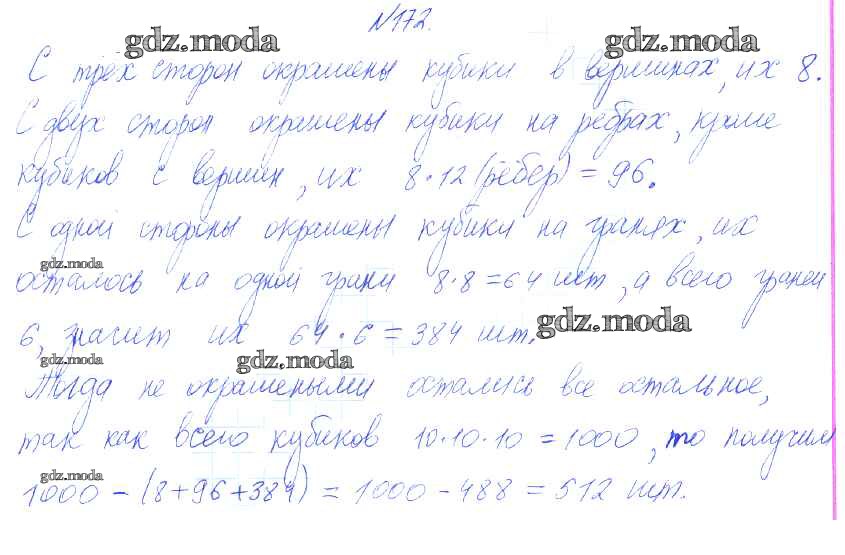 №172.
gdz.moda gdz.moda
С трёх сторон окрашены кубики в вершинах, их 8.
С двух сторон окрашены кубики на рёбрах, кроме
кубиков с вершин, их 8·12 (рёбер) = 96.
С одной стороны окрашены кубики на гранях, их
gdz.moda
осталось на одной грани 8·8=64 шт, а всего граней
gdz.moda
6, значит их 64·6=384 шт.
gdz.moda gdz.moda
Тогда не окрашеными остались все остальное,
так как всего кубиков 10·10·10=1000, то получим
gdz.moda
1000-(8+96+384)=1000-488=512 шт.